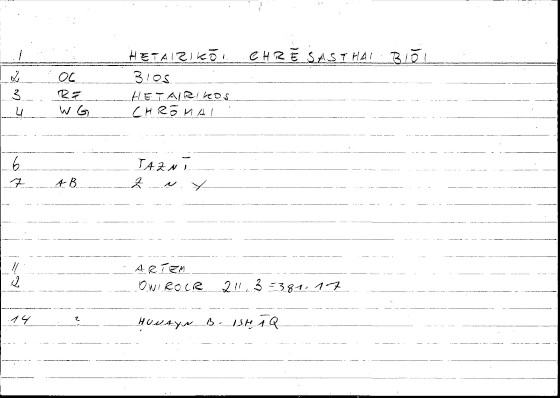 1 HETAIRIKŌI CHRĒSASTHAI BIŌI
2 OC BIOS
3 RF HETAIRIKOS
4 WG CHRŌMAI
6 TAZNĪ
7 AB Z N Y
11 ARTEM
2 ONIROCR 211.3=381.17
14 2 HUNAYN B. ISḤĀQ